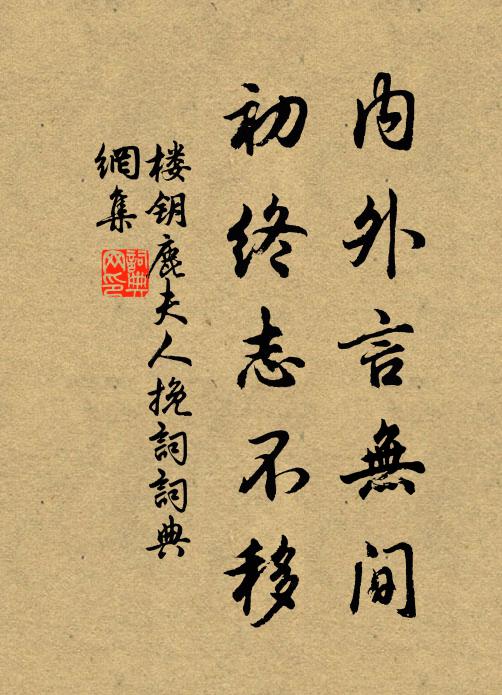 内外言無间
初终志不移
楼钥鹿夫人挽詞詞典
網集
詞典
网印